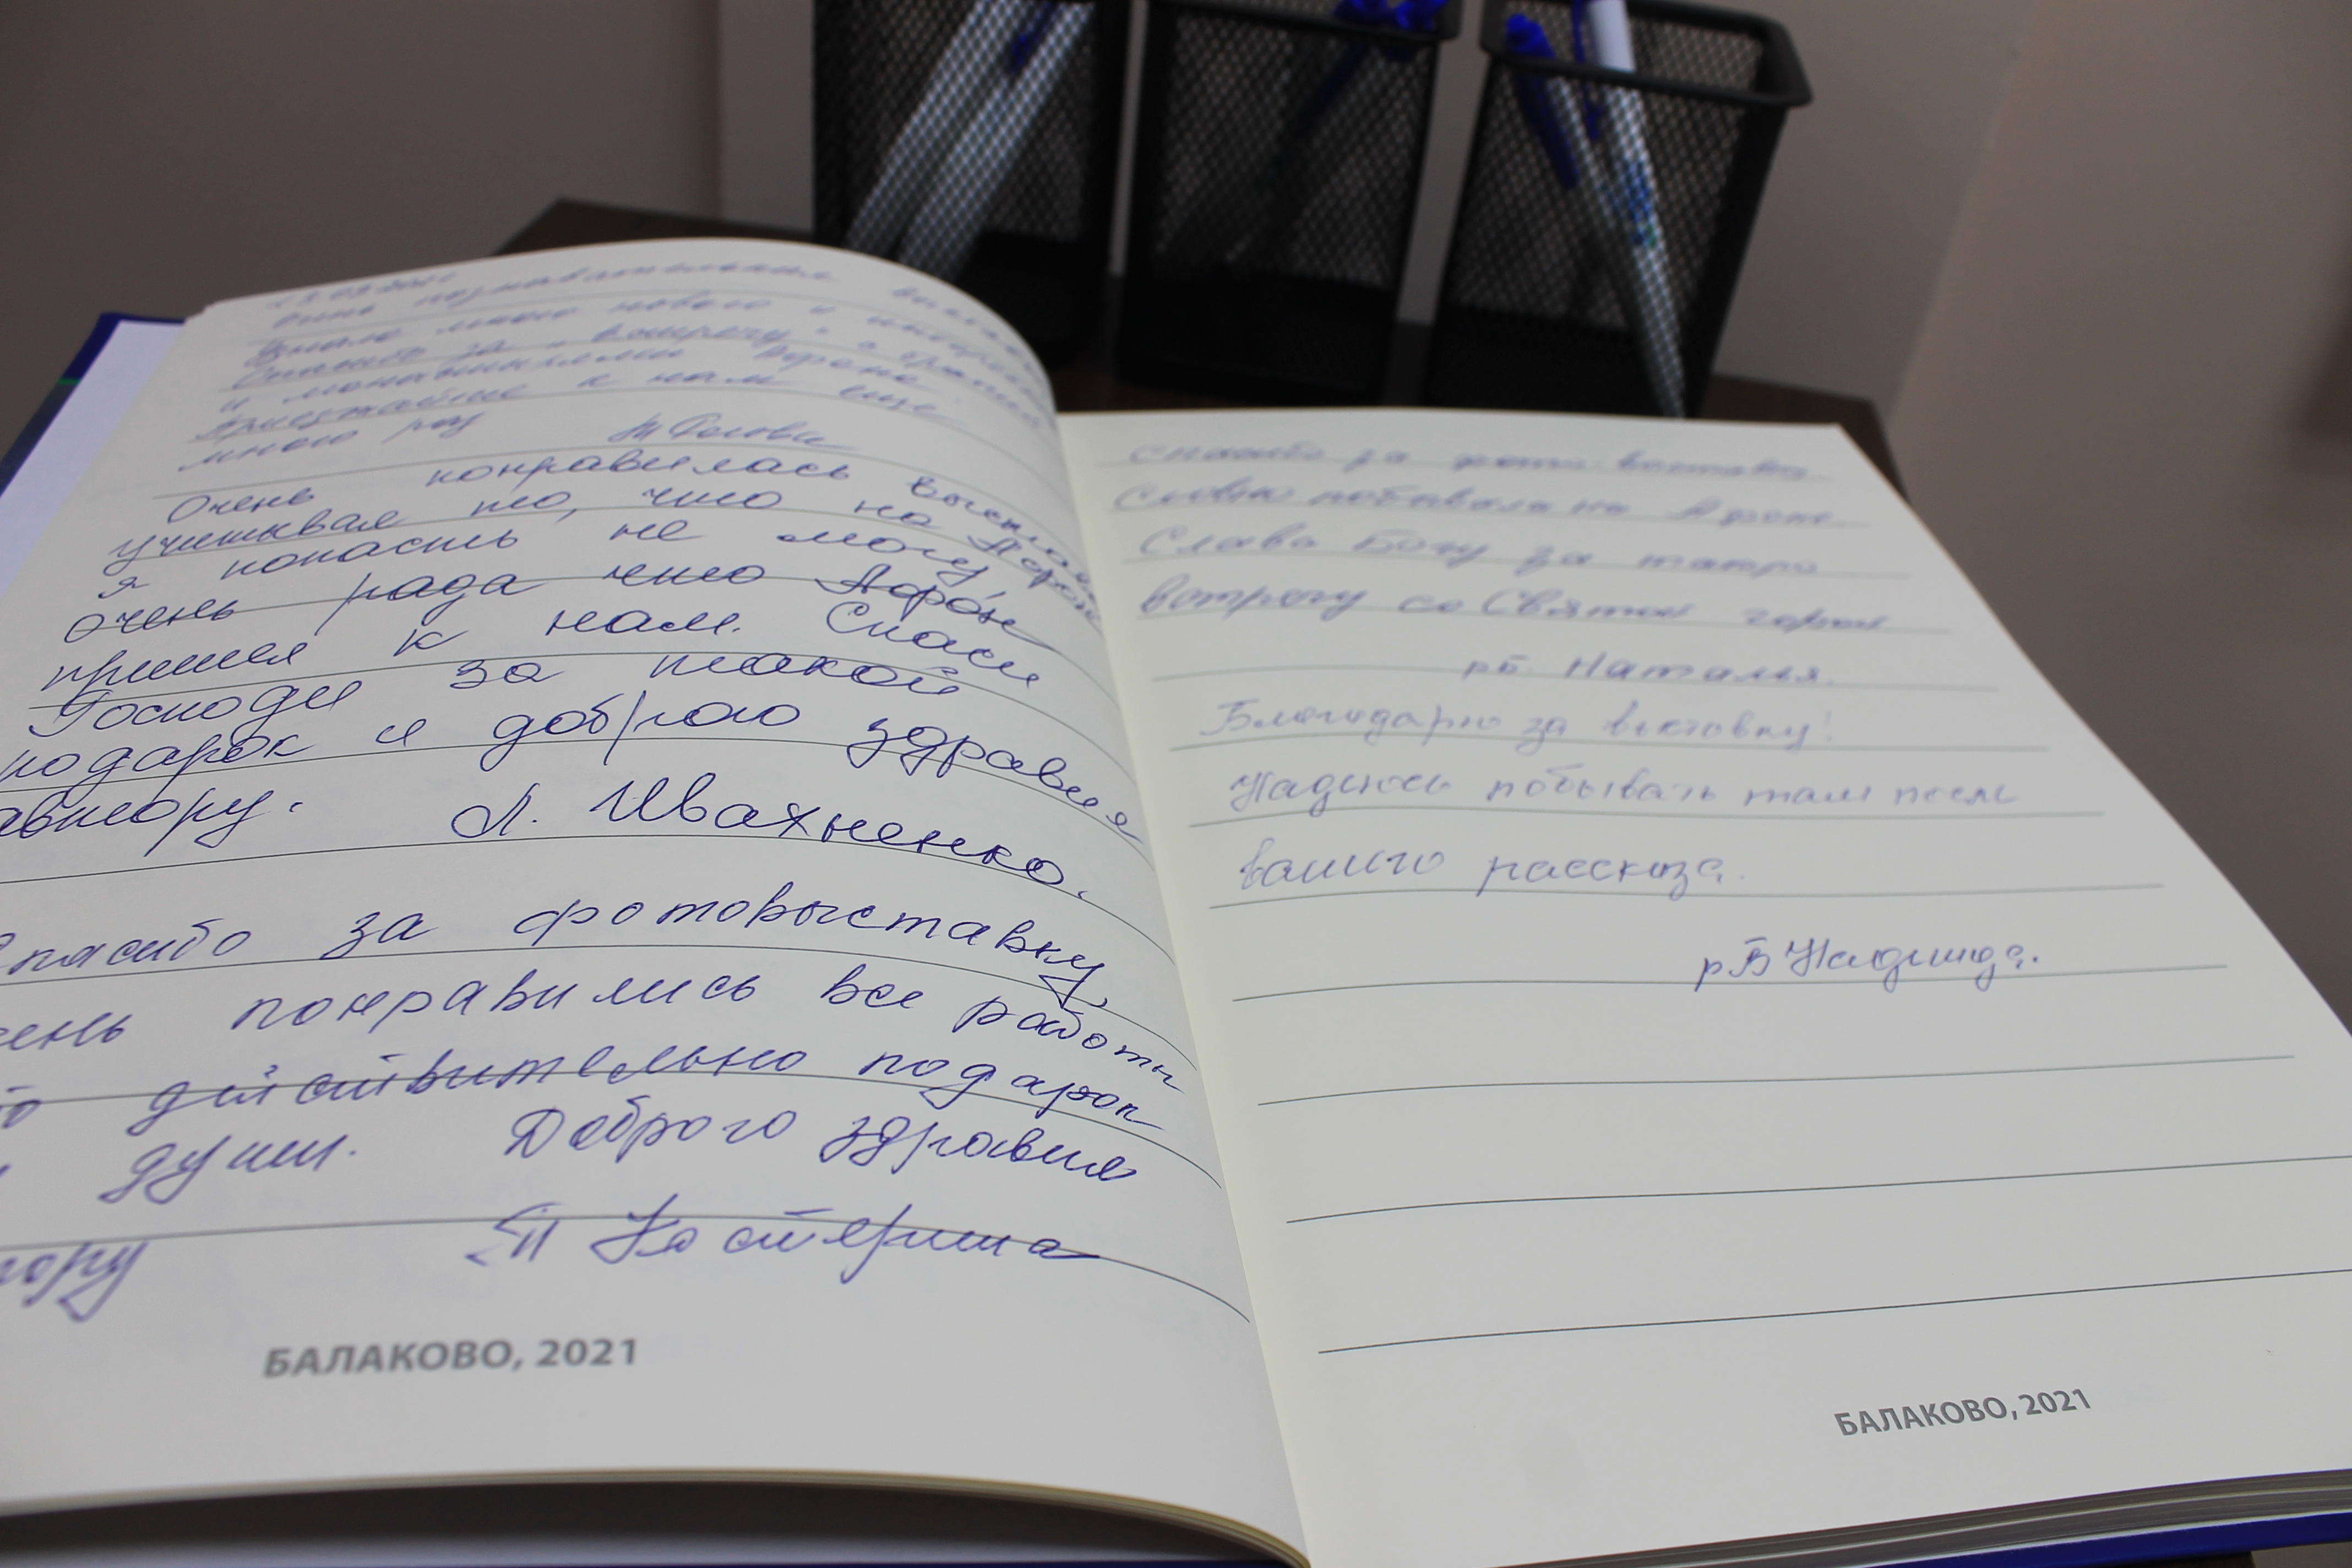 очень познавательная
Узнала много нового и
Спасибо за встречу с
и монашеством Афона
Приезжайте к нам еще
много раз
Очень понравилась выставка
учитывая то, что на Афон
я попасть не могу
очень рада что Афон
пришел к нам. Спаси
Господи за такой
подарок и доброго здравия
автору. Л. Ивахненко.
Спасибо за фотовыставку,
понравились все работы
действительно подарок
души. Доброго здравия
П Костерина
БАЛАКОВО, 2021
Спасибо за фото выставку
Словно побывали на Афоне.
Слава Богу за такую
встречу со Святой горой
рб. Наталья.
Благодарю за выставку!
Надеюсь побывать там после
вашего рассказа.
рБ Надежда.
БАЛАКОВО, 2021